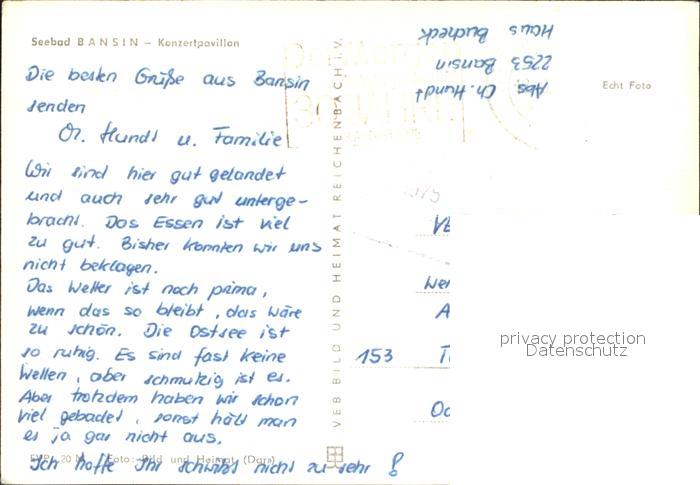 Seebad BANSIN – Konzertpavillon
Die besten Grüße aus Bansin
senden
Ch. Hundt u. Familie
Wir sind hier gut gelandet
und auch sehr gut unterge-
bracht. Das Essen ist viel
zu gut. Bisher konnten wir uns
nicht beklagen.
Das Wetter ist noch prima,
wenn das so bleibt, das wäre
zu schön. Die Ostsee ist
so ruhig. Es sind fast keine
Wellen, aber schmutzig ist es.
Aber trotzdem haben wir schon
viel gebadet, sonst hält man
es ja gar nicht aus.
Ich hoffe Ihr schwitzt nicht zu sehr!
Foto: Bild und Heimat (Darr)
VEB BILD UND HEIMAT REICHENBACH I.V.
Abs. Ch. Hundt
2253 Bansin
Haus Bucheck
Echt Foto
153
privacy protection
Datenschutz